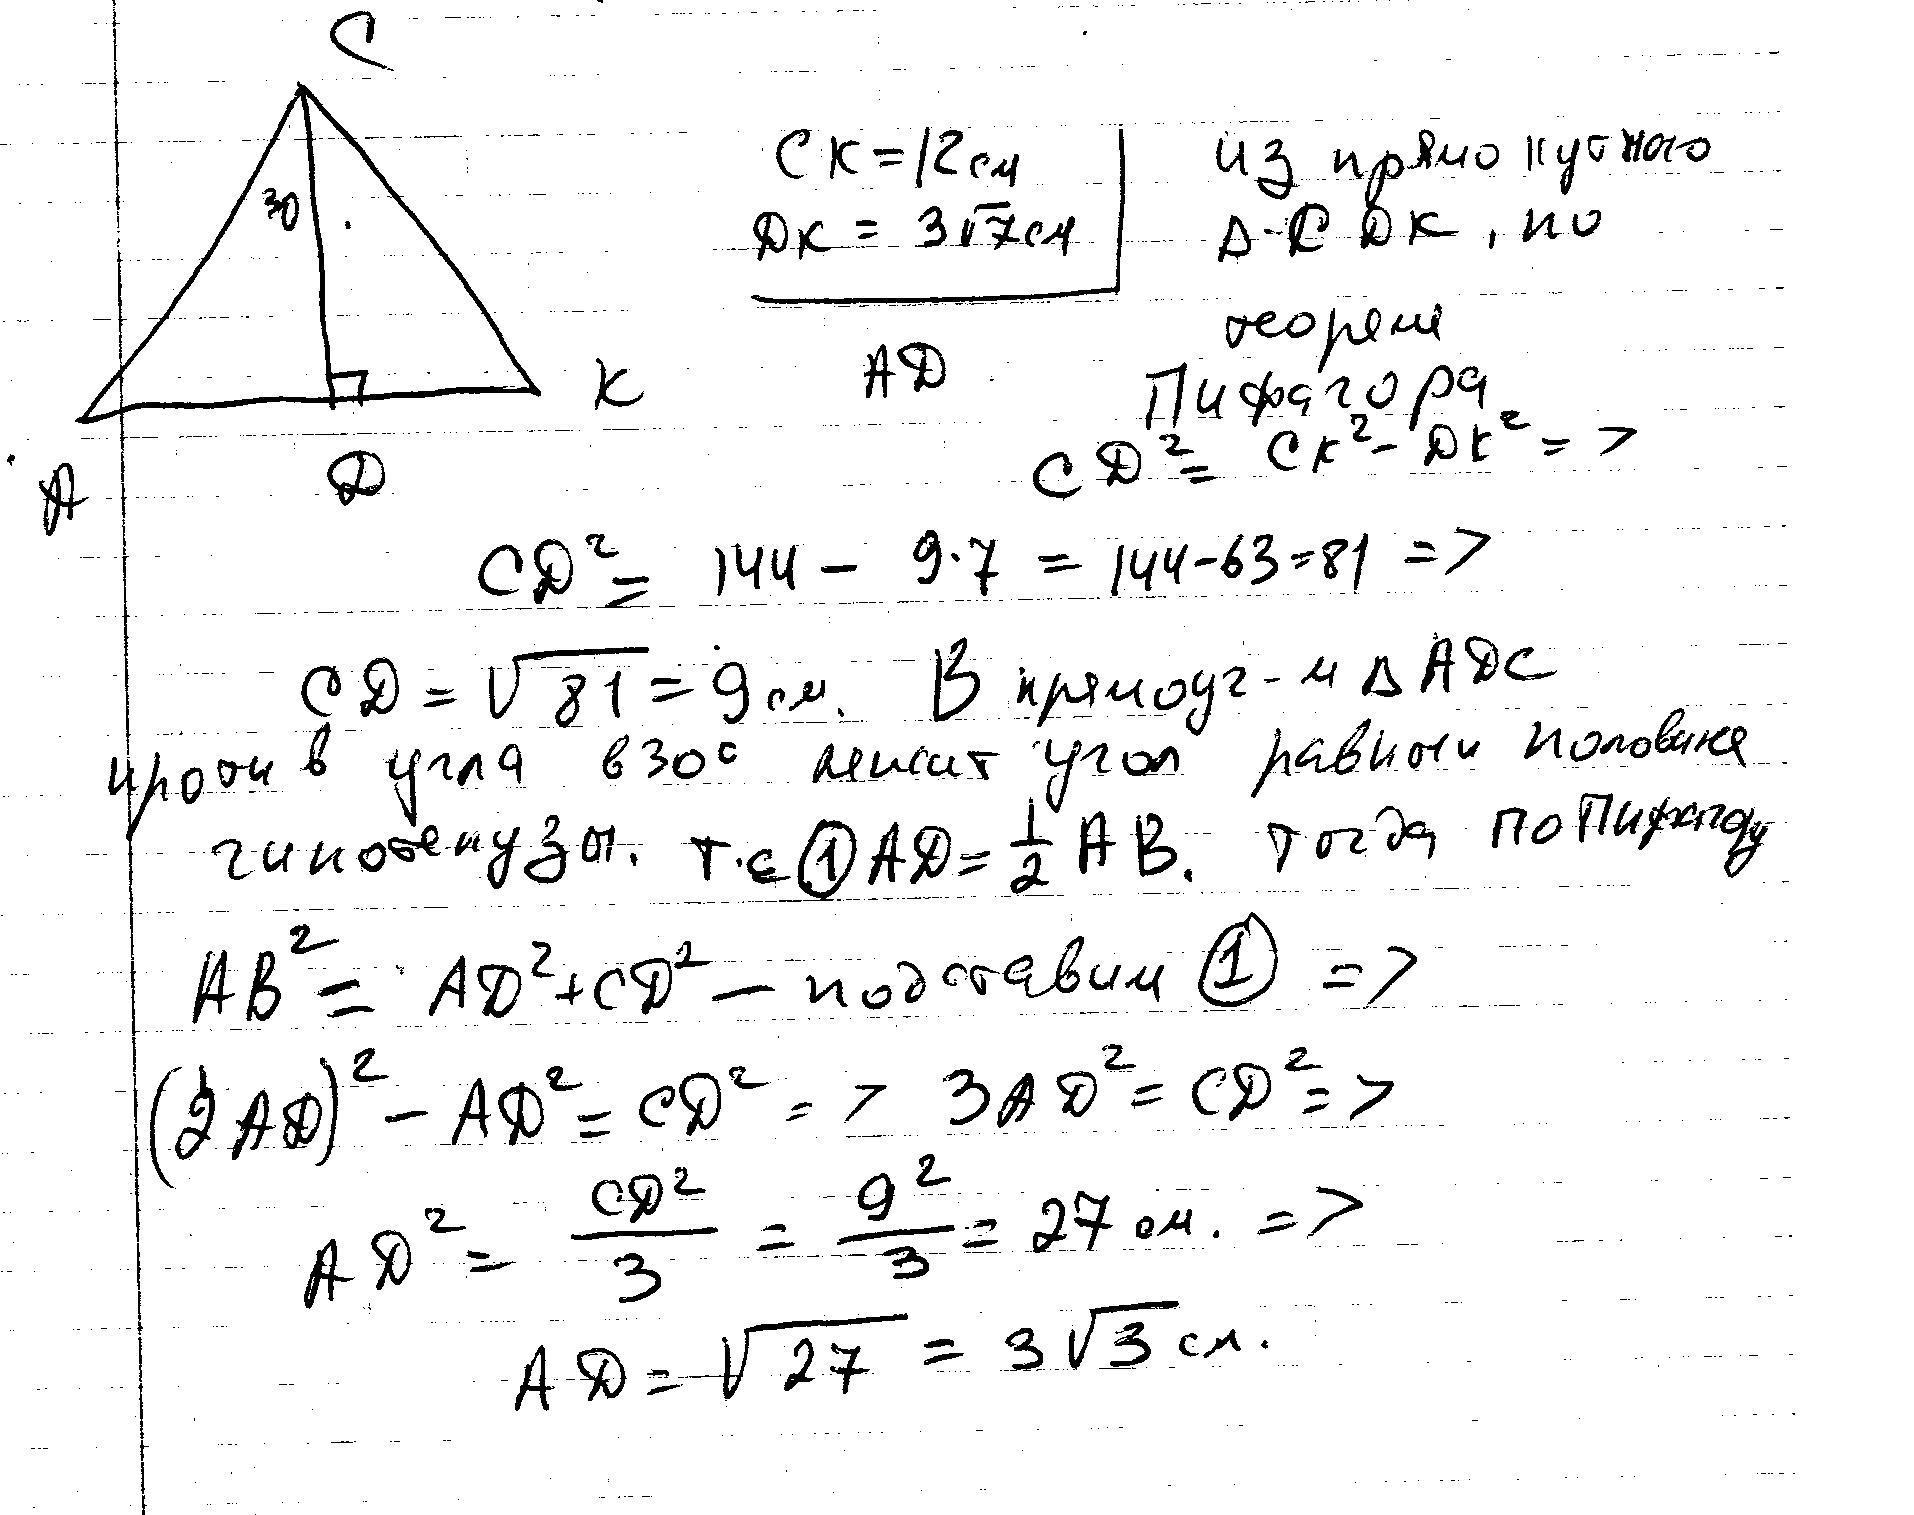 C
30
A
D
K
CK = 12 см
DK = 3√7 см
AD
из прямокутного
Δ CDK, по
теореме
Пифагора
CD² = CK² - DK² =>
CD² = 144 - 9·7 = 144-63=81 =>
CD = √81 = 9 см. В прямоуг-м Δ ADC
против угла в 30° лежит угол равный половине
гипотенузы. т.е ① AD = 1/2 AB. Тогда по Пифагору
AB² = AD²+CD² — подставим ① =>
(2AD)² - AD² = CD² => 3AD² = CD² =>
AD² = CD²/3 = 9²/3 = 27 см. =>
AD = √27 = 3√3 см.